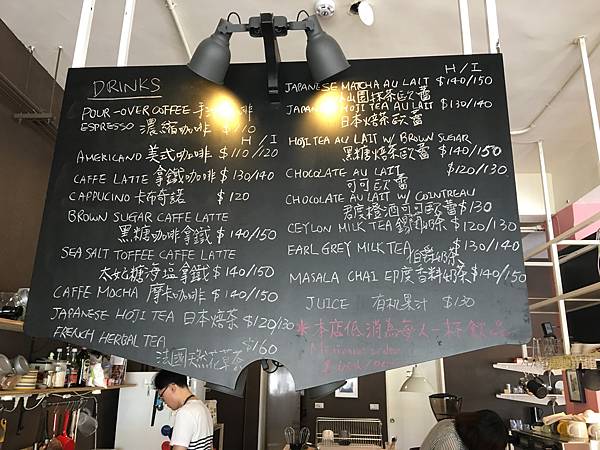 DRINKS
POUR-OVER COFFEE 手
ESPRESSO 濃縮咖啡 $110
H / I
AMERICANO 美式咖啡 $110/120
CAFFE LATTE 拿鐵咖啡 $130/140
CAPPUCINO 卡布奇諾 $120
BROWN SUGAR CAFFE LATTE
黑糖咖啡拿鐵 $140/150
SEA SALT TOFFEE CAFFE LATTE
太妃糖海塩拿鐵 $140/150
CAFFE MOCHA 摩卡咖啡 $140/150
JAPANESE HOJI TEA 日本焙茶 $120/130
FRENCH HERBAL TEA
法國天然花草茶 $160
H / I
JAPANESE MATCHA AU LAIT $140/150
山園抹茶歐蕾
JAPANESE HOJI TEA AU LAIT $130/140
日本焙茶歐蕾
HOJI TEA AU LAIT W/ BROWN SUGAR
黑糖焙茶歐蕾 $140/150
CHOCOLATE AU LAIT $120/130
可可歐蕾
CHOCOLATE AU LAIT W/ COINTREAU
君度橙酒可可歐蕾 $130
CEYLON MILK TEA 錫蘭奶茶 $120/130
EARL GREY MILK TEA $130/140
伯爵奶茶
MASALA CHAI 印度香料奶茶 $140/150
JUICE 有机果汁 $130
*本店低消為每人一杯飲品
Minimum order
1 drink / per